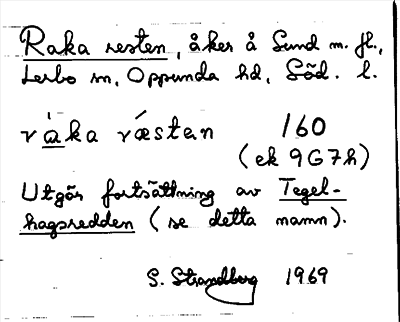 Raka resten, åker å Sund m. fl.,
Lerbo sn, Oppunda hd, Söd. l.
vàka vǽstan 160
(ek 9G7h)
Utgör fortsättning av Tegel-
hagsredden (se detta namn).
S. Strandberg 1969